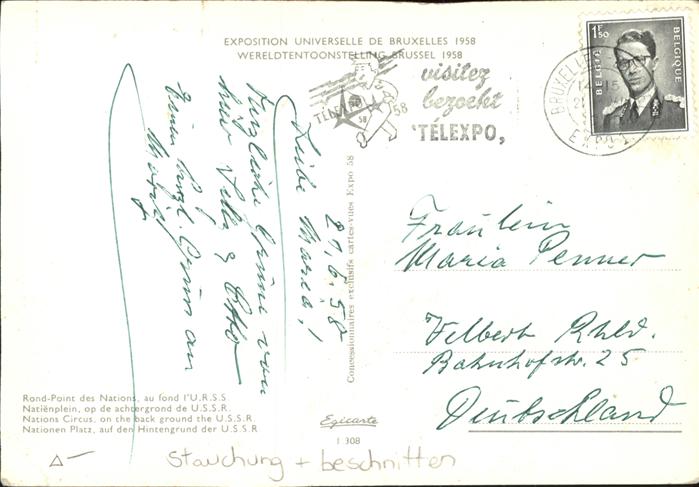 EXPOSITION UNIVERSELLE DE BRUXELLES 1958
WERELDTENTOONSTELLING BRUSSEL 1958
visitez
bezoekt
'TÉLEXPO,
TÉLEXPO
58
58
BRUXELLES
1F50
BELGIE
BELGIQUE
21.6.58
Liebe Maria!
Herzliche Grüsse von
hier
Otto
Einen herzl. Gruss an
Concessionnaires exclusifs cartes-vues Expo 58
Fräulein
Maria Penner
Velbert Rhld.
Bahnhofstr. 25
Deutschland
Rond-Point des Nations, au fond l'U.R.S.S
Natiënplein, op de achtergrond de U.S.S.R.
Nations Circus, on the back ground the U.S.S.R.
Nationen Platz, auf den Hintergrund der U.S.S.R
Egicarte
1 308
Stauchung + beschnitten